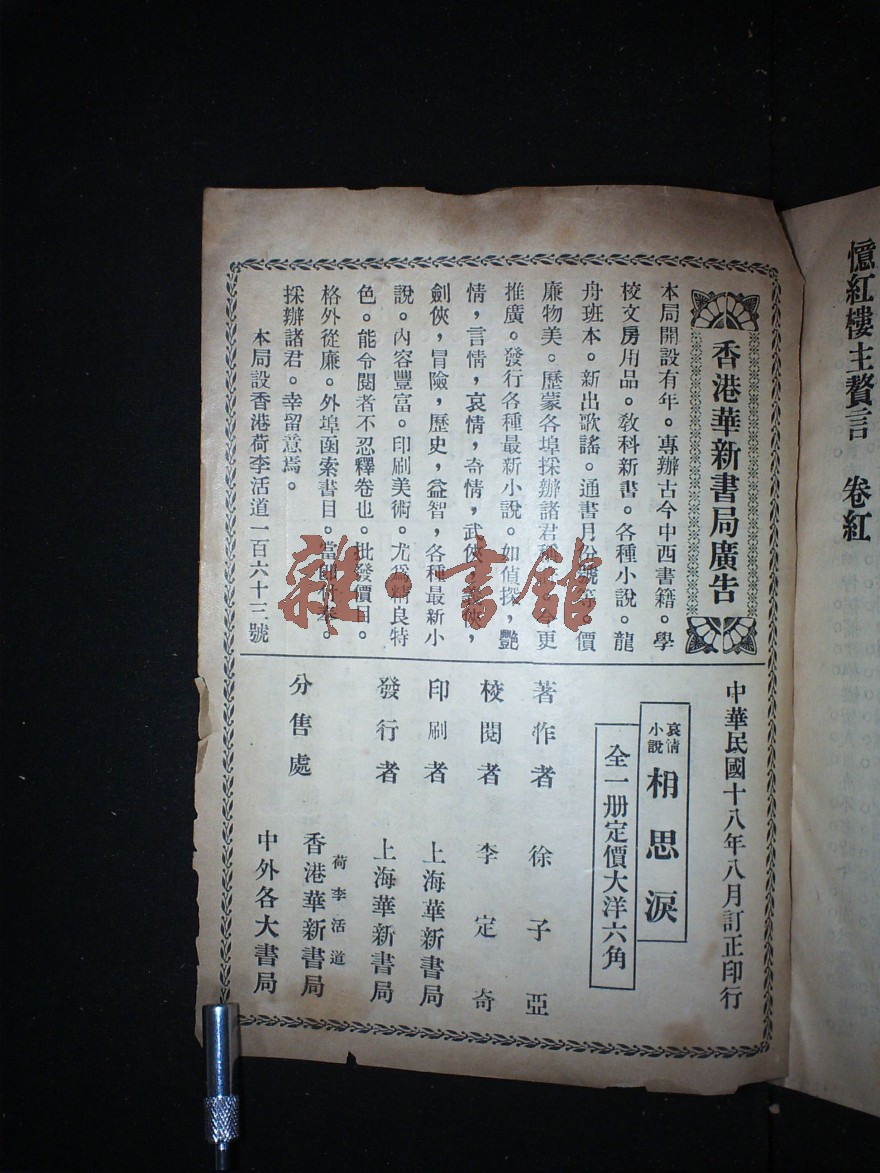 憶紅樓主贅言　卷紅
香港華新書局廣告
本局開設有年。專辦古今中西書籍。學
校文房用品。敎科新書。各種小說。龍
舟班本。新出歌謠。通書月份號等。價
廉物美。歷蒙各埠採辦諸君稱 更
推廣。發行各種最新小說。如偵探，艷
情，言情，哀情，奇情，武俠，義俠，
劍俠，冒險，歷史，益智，各種最新小
說。內容豐富。印刷美術。尤爲精良特
色。能令閱者不忍釋卷也。批發價目。
格外從廉。外埠函索書目。當卽付奉。
採辦諸君。幸留意焉。
本局設香港荷李活道一百六十三號
中華民國十八年八月訂正印行
哀情小說 相思淚
全一册定價大洋六角
著作者 徐子亞
校閱者 李定奇
印刷者 上海華新書局
發行者 上海華新書局
分售處 荷李活道 香港華新書局
中外各大書局
雜·書館